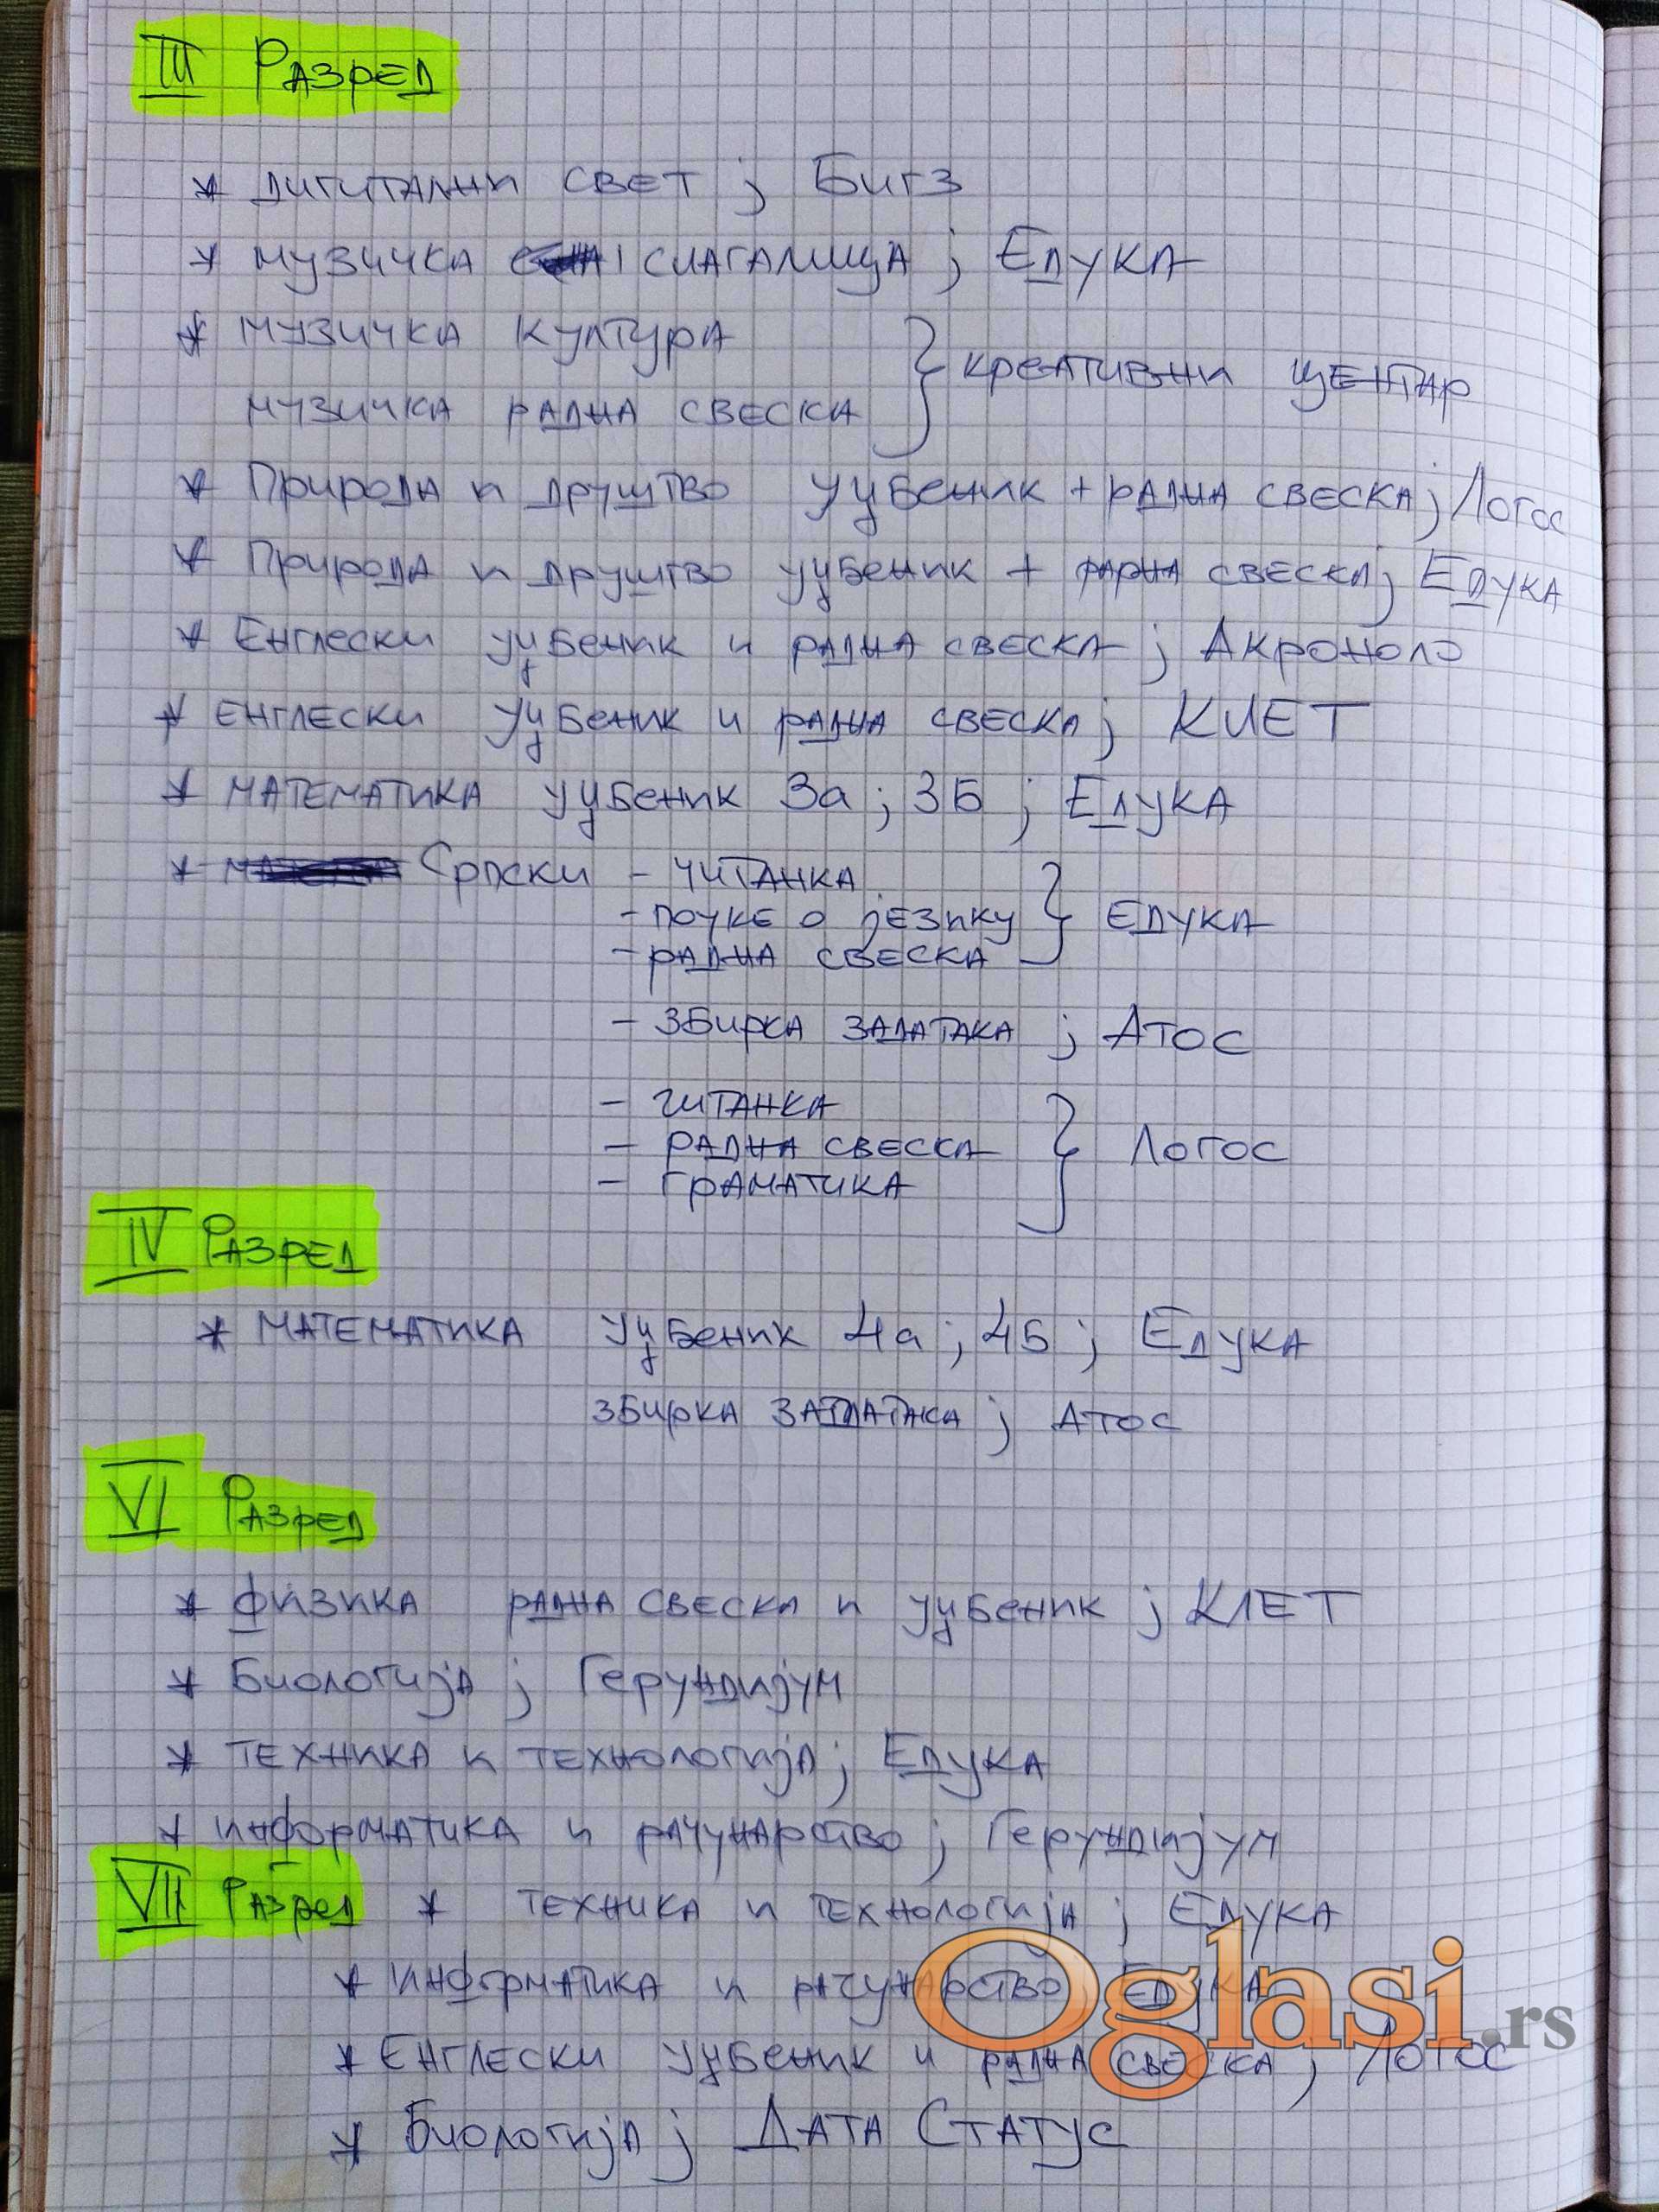 III Разред
* Дигитални свет ; Бигз
* Музичка слагалица ; Едука
* Музичка култура
Музичка радна свеска } Креативни центар
* Природа и друштво уџбеник + радна свеска ; Логос
* Природа и друштво уџбеник + радна свеска ; Едука
* Енглески уџбеник и радна свеска ; Акроноло
* Енглески уџбеник и радна свеска ; КЛЕТ
* Математика уџбеник 3а ; 3Б ; Едука
* Српски - читанка
- поуке о језику } Едука
- радна свеска
- збирка задатака ; Атос
- читанка
- радна свеска } Логос
- граматика
IV Разред
* Математика уџбеник 4а ; 4Б ; Едука
збирка задатака ; Атос
VI Разред
* Физика радна свеска и уџбеник ; КЛЕТ
* Биологија ; Герундијум
* Техника и технологија ; Едука
* Информатика и рачунарство ; Герундијум
VII Разред * Техника и технологија ; Едука
* Информатика и рачунарство ; Едука
* Енглески уџбеник и радна свеска ; Логос
* Биологија ; Дата Статус
Oglasi.rs